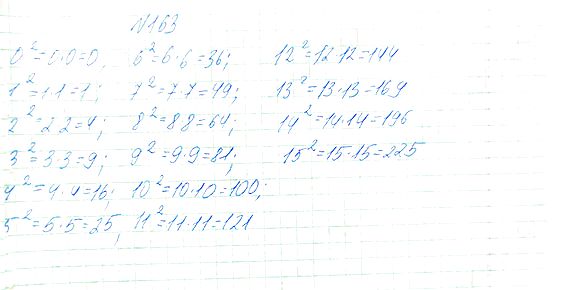 N163
0²=0·0=0, 6²=6·6=36; 12²=12·12=144
1²=1·1=1; 7²=7·7=49; 13²=13·13=169
2²=2·2=4; 8²=8·8=64; 14²=14·14=196
3²=3·3=9; 9²=9·9=81; 15²=15·15=225
4²=4·4=16; 10²=10·10=100;
5²=5·5=25, 11²=11·11=121